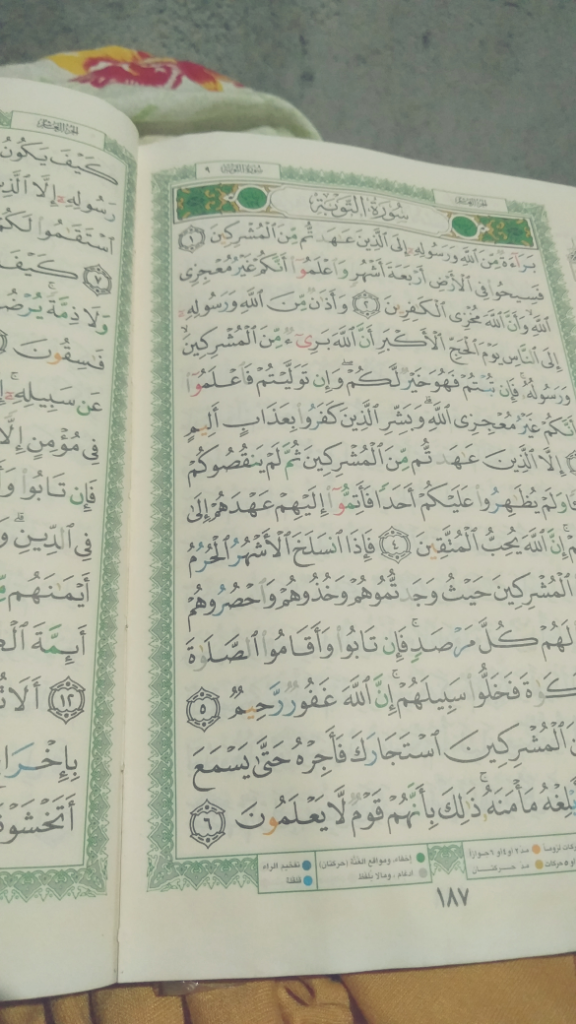 سُورَةُ التَّوْبَةِ ٩
سُورَةُ التَّوْبَةِ
بَرَآءَةٌ مِّنَ ٱللَّهِ وَرَسُولِهِۦٓ إِلَى ٱلَّذِينَ عَٰهَدتُّم مِّنَ ٱلْمُشْرِكِينَ ١
فَسِيحُوا۟ فِى ٱلْأَرْضِ أَرْبَعَةَ أَشْهُرٍ وَٱعْلَمُوٓا۟ أَنَّكُمْ غَيْرُ مُعْجِزِى
ٱللَّهِ وَأَنَّ ٱللَّهَ مُخْزِى ٱلْكَٰفِرِينَ ٢ وَأَذَٰنٌ مِّنَ ٱللَّهِ وَرَسُولِهِۦٓ
إِلَى ٱلنَّاسِ يَوْمَ ٱلْحَجِّ ٱلْأَكْبَرِ أَنَّ ٱللَّهَ بَرِىٓءٌ مِّنَ ٱلْمُشْرِكِينَ
وَرَسُولُهُۥ فَإِن تُبْتُمْ فَهُوَ خَيْرٌ لَّكُمْ وَإِن تَوَلَّيْتُمْ فَٱعْلَمُوٓا۟
أَنَّكُمْ غَيْرُ مُعْجِزِى ٱللَّهِ وَبَشِّرِ ٱلَّذِينَ كَفَرُوا۟ بِعَذَابٍ أَلِيمٍ
إِلَّا ٱلَّذِينَ عَٰهَدتُّم مِّنَ ٱلْمُشْرِكِينَ ثُمَّ لَمْ يَنقُصُوكُمْ
وَلَمْ يُظَٰهِرُوا۟ عَلَيْكُمْ أَحَدًا فَأَتِمُّوٓا۟ إِلَيْهِمْ عَهْدَهُمْ إِلَىٰ
إِنَّ ٱللَّهَ يُحِبُّ ٱلْمُتَّقِينَ ٤ فَإِذَا ٱنسَلَخَ ٱلْأَشْهُرُ ٱلْحُرُمُ
ٱلْمُشْرِكِينَ حَيْثُ وَجَدتُّمُوهُمْ وَخُذُوهُمْ وَٱحْصُرُوهُمْ
لَهُمْ كُلَّ مَرْصَدٍ فَإِن تَابُوا۟ وَأَقَامُوا۟ ٱلصَّلَوٰةَ
فَخَلُّوا۟ سَبِيلَهُمْ إِنَّ ٱللَّهَ غَفُورٌ رَّحِيمٌ ٥
ٱلْمُشْرِكِينَ ٱسْتَجَارَكَ فَأَجِرْهُ حَتَّىٰ يَسْمَعَ
أَبْلِغْهُ مَأْمَنَهُۥ ذَٰلِكَ بِأَنَّهُمْ قَوْمٌ لَّا يَعْلَمُونَ ٦
إخفاء، ومواقع الغُنَّة (حركتان)
تفخيم الراء
إدغام، وما لا يُلفظ
قلقلة
مد حركتان
١٨٧
كَيْفَ يَكُونُ
رَسُولِهِۦٓ إِلَّا ٱلَّذِينَ
ٱسْتَقَٰمُوا۟ لَكُمْ
٧ كَيْفَ
وَلَا ذِمَّةً يُرْضُ
فَٰسِقُونَ
عَن سَبِيلِهِۦٓ
فِى مُؤْمِنٍ إِلًّا
فَإِن تَابُوا۟
فِى ٱلدِّينِ
أَيْمَٰنَهُم
أَئِمَّةَ
١٢ أَلَا
بِإِخْرَا
أَتَخْشَوْ